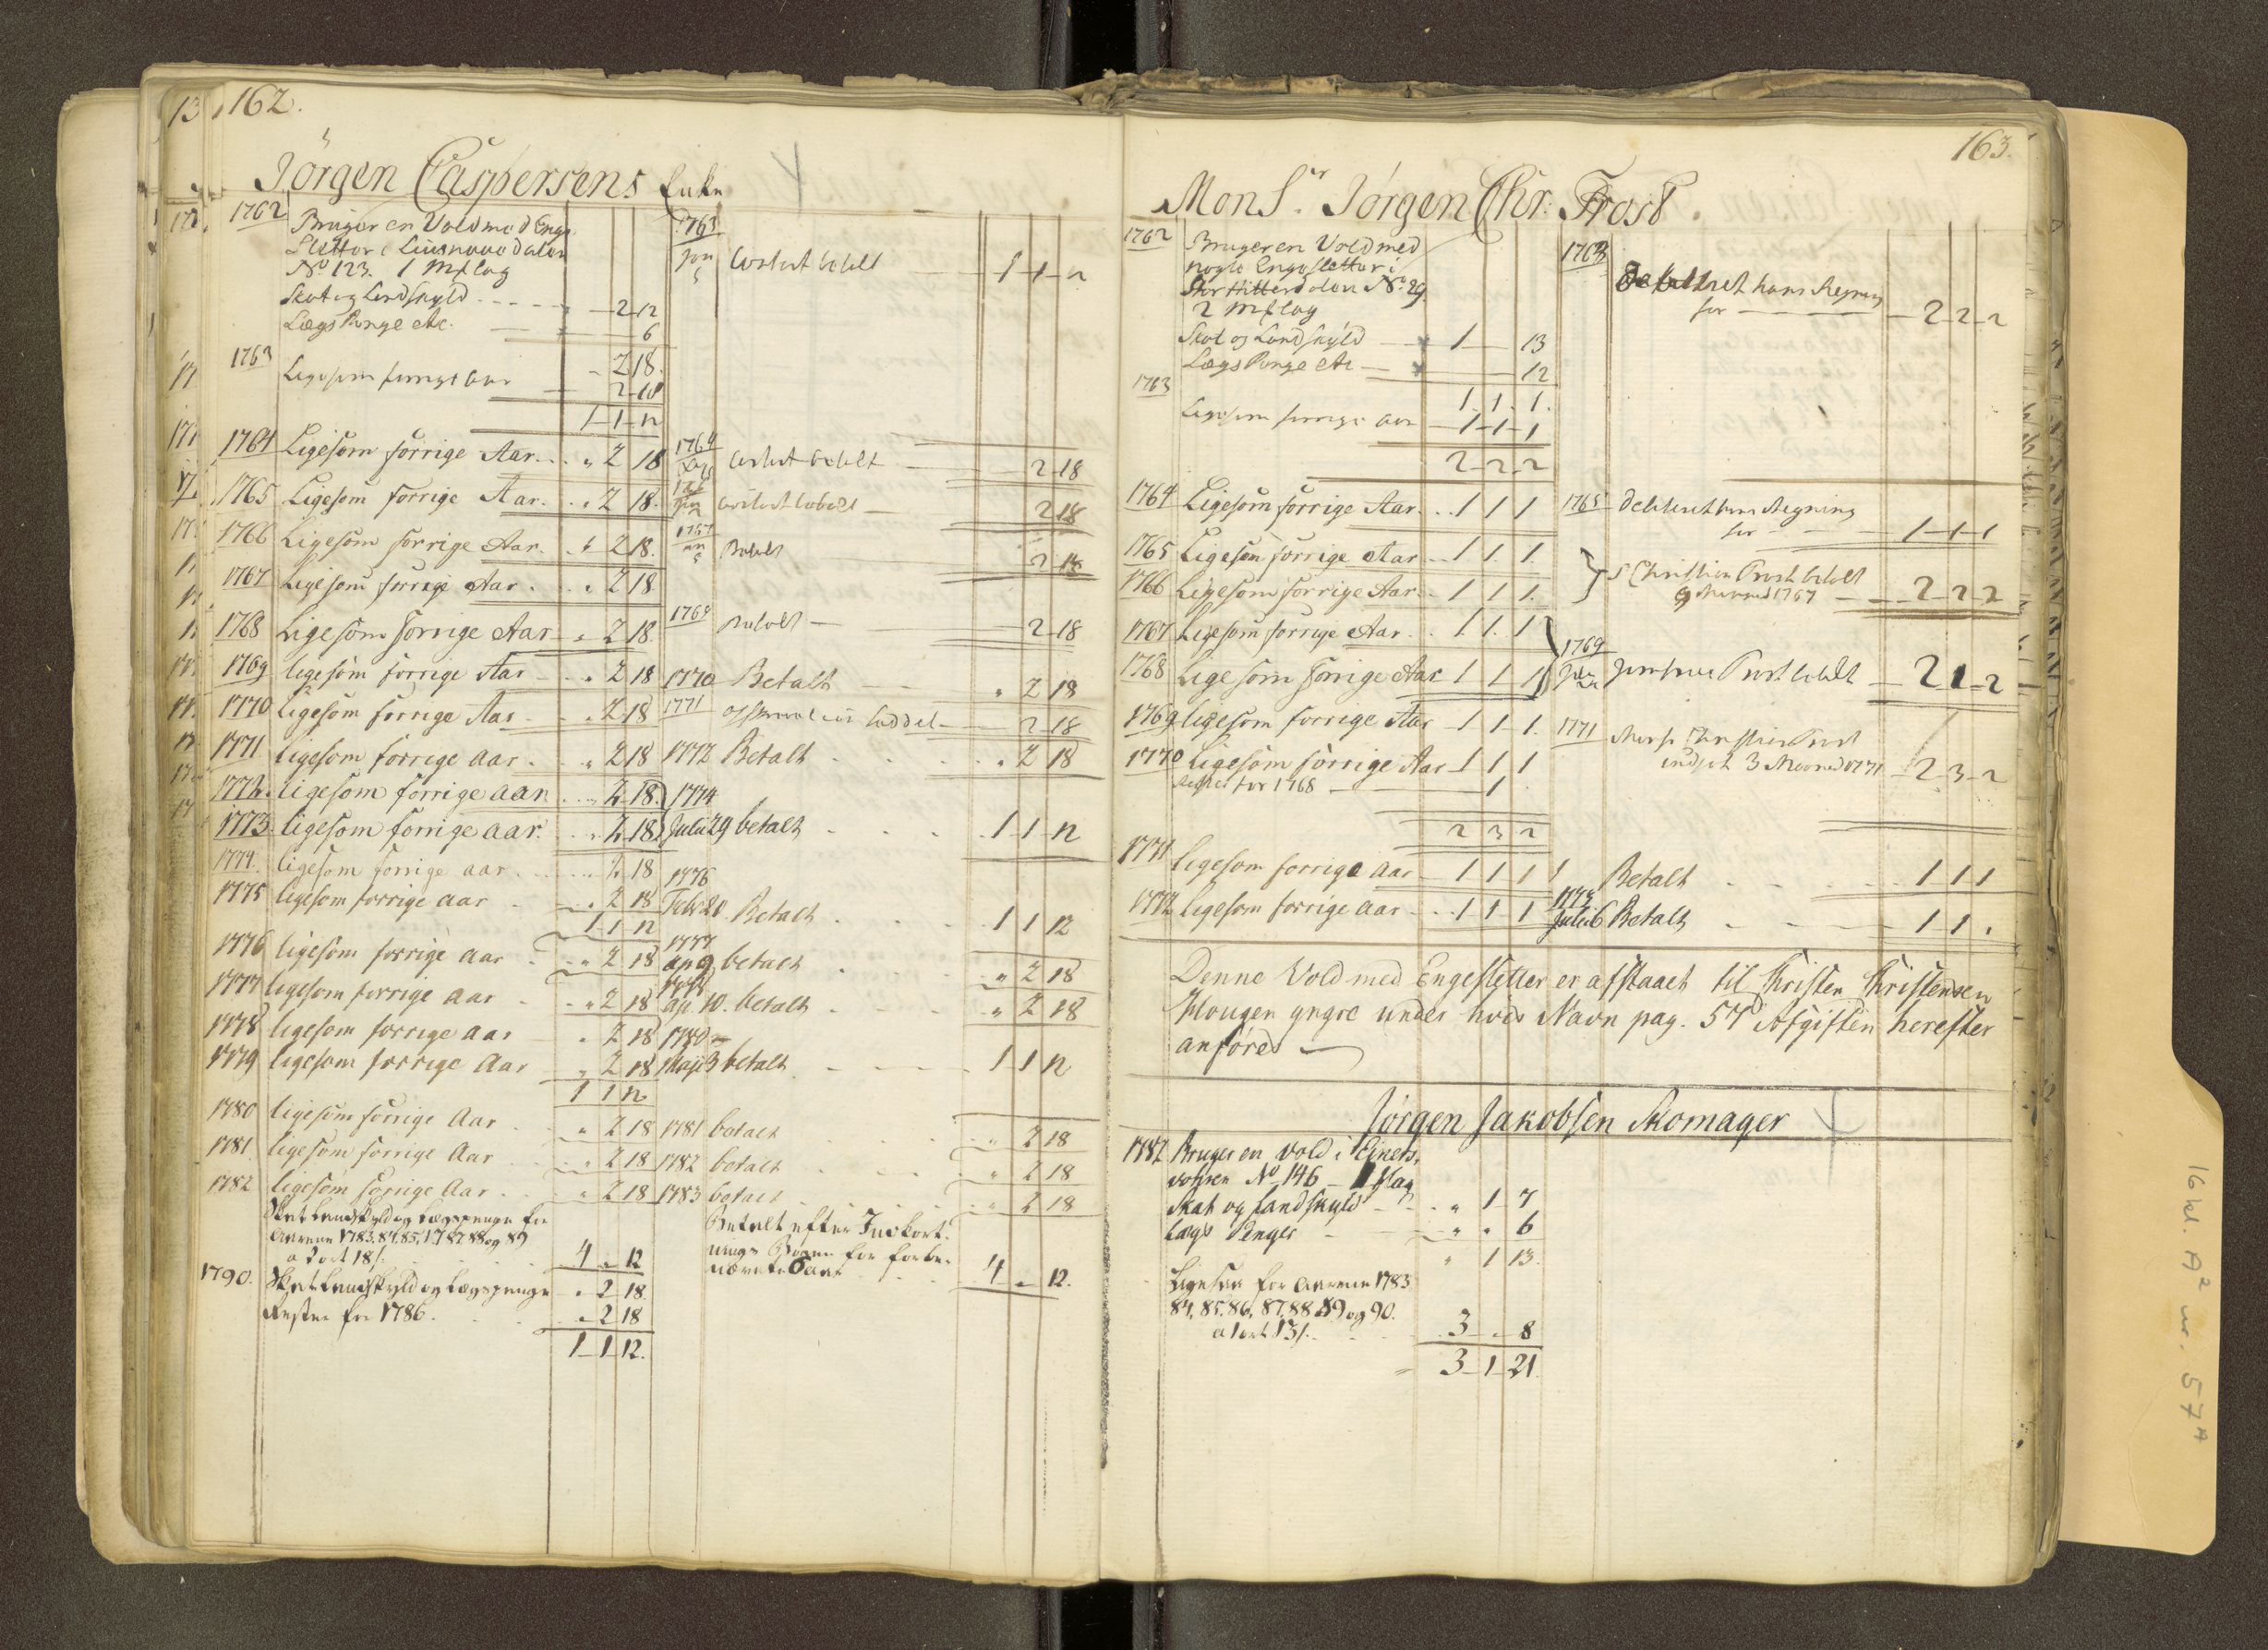 162.
Jörgen Caspersens Enke
1762 Bruger en Vold med Enge
Sletter i
No 123. 1 Mklag
Skat og Landskyld - 2 12
Lægs Penge etc. 6
2 18.
1763 Ligesom forrige Aar 2 18
1 1 12
1764 Ligesom forrige Aar. " 2 18
1765 Ligesom forrige Aar. " 2 18.
1766 Ligesom forrige Aar. " 2 18.
1767 Ligesom forrige Aar. " 2 18.
1768 Ligesom forrige Aar " 2 18.
1769 ligesom forrige Aar " 2 18
1770 ligesom forrige Aar " 2 18
1771 ligesom forrige aar. " 2 18
1772. ligesom forrige aar " 2 18.
1773. ligesom forrige aar. " 2 18.
1774. ligesom forrige aar. " 2 18
1775 ligesom forrige aar " 2 18
1 1 12
1776 ligesom forrige aar " 2 18
1777 ligesom forrige aar " 2 18
1778 ligesom forrige aar " 2 18
1779 ligesom forrige Aar " 2 18
1 1 12
1780 ligesom forrige Aar " 2 18
1781 ligesom forrige Aar " 2 18
1782 ligesom forrige Aar. " 2 18
Skat Landskyld og Lægspenge for
Aarene 1783. 84. 85. 17 87 88 og 89
a 2 ort 18 s. 4 " 12
1790. Skat Landskyld og Lægspenge " 2 18
Rester for 1786. " 2 18
1 1 12.
1763
Jan betalt 1 1 12
1764
betalt 2 18
2 18
1767
Betalt 2 18
1769 Betalt 2 18
1770 Betalt " 2 18
1771 2 18
1772 Betalt " 2 18
1774
Julii 29 betalt 1 1 12
1776
Febr 20 Betalt 1 1 12
1777
ap 9 betalt " 2 18
1778
ap. 10. betalt " 2 18
1780
Maji 3 betalt 1 1 12
1781 betalt " 2 18
1782 betalt " 2 18
1783 betalt " 2 18
Betalt efter Indkort-
nings Bogen for forbe-
nævnte 6 aar 4 " 12.
163.
Mons.r Jörgen Chr: Frost.
1762 Bruger en Vold med
nogle Enge sletter i
No. 29
2 Mklag
Skat og Landskyld 1 13
Lægs Penge etc 12
1. 1. 1.
1763 Ligesom forrige aar 1 1 1
2 2 2
1764 Ligesom forrige Aar. 1 1 1
1765 Ligesom forrige Aar 1 1. 1.
1766 Ligesom forrige Aar. 1 1 1.
1767 Ligesom forrige Aar. 1. 1. 1
1768 Ligesom forrige Aar 1 1 1
1769 ligesom forrige Aar 1 1 1.
1770 Ligesom forrige Aar 1 1 1
Rester for 1768 1
2 3 2
1771 ligesom forrige aar 1 1 1
1772 ligesom forrige aar 1 1 1
1763
Debiteret hans Regning
for 2 2 2
1765 Debiteret hans Regning
for 1 1 1
S. Christian Frost betalt
9 1767 2 2 2
1769
Frost betalt 2 1 2
1771 Frost
3 1771 2 3 2
Betalt 1 1 1
1773
Julii 6 Betalt 1 1 .
Denne Vold med Engesletter er afstaaet til Kristen Kristensen
Mougen yngre under hvis Navn pag. 57 Afgiften herefter
anföres
Jörgen Jakobsen Skomager
1782 Bruger en vold i
No 146 1 Mklag
Skat og landskyld " 1 7
Lægs Penger " " 6
" 1 13.
Ligesaa for Aarene 1783.
84, 85. 86, 87. 88. 89 og 90.
a 1 ort 13 s. 3 " 8
3 1 21.
16 kl. A² nr. 57 A